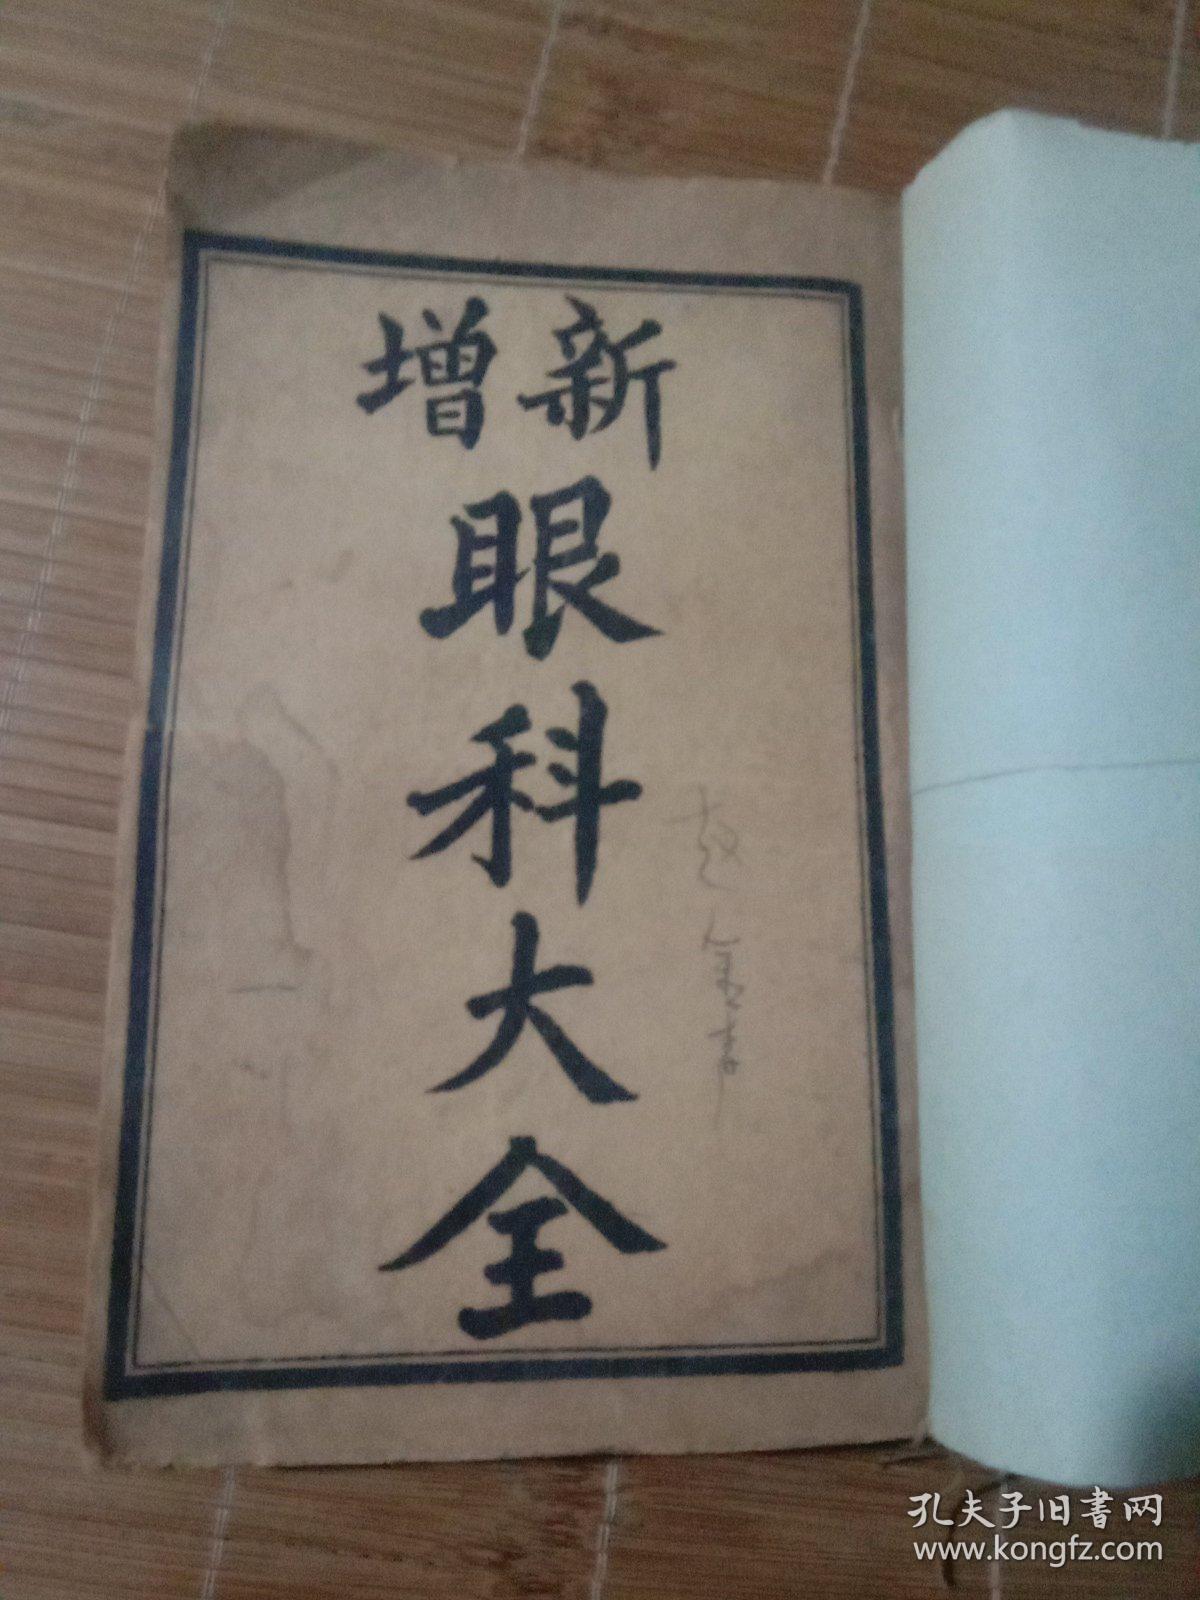 新增
眼科大全
孔夫子旧書网
www.kongfz.com